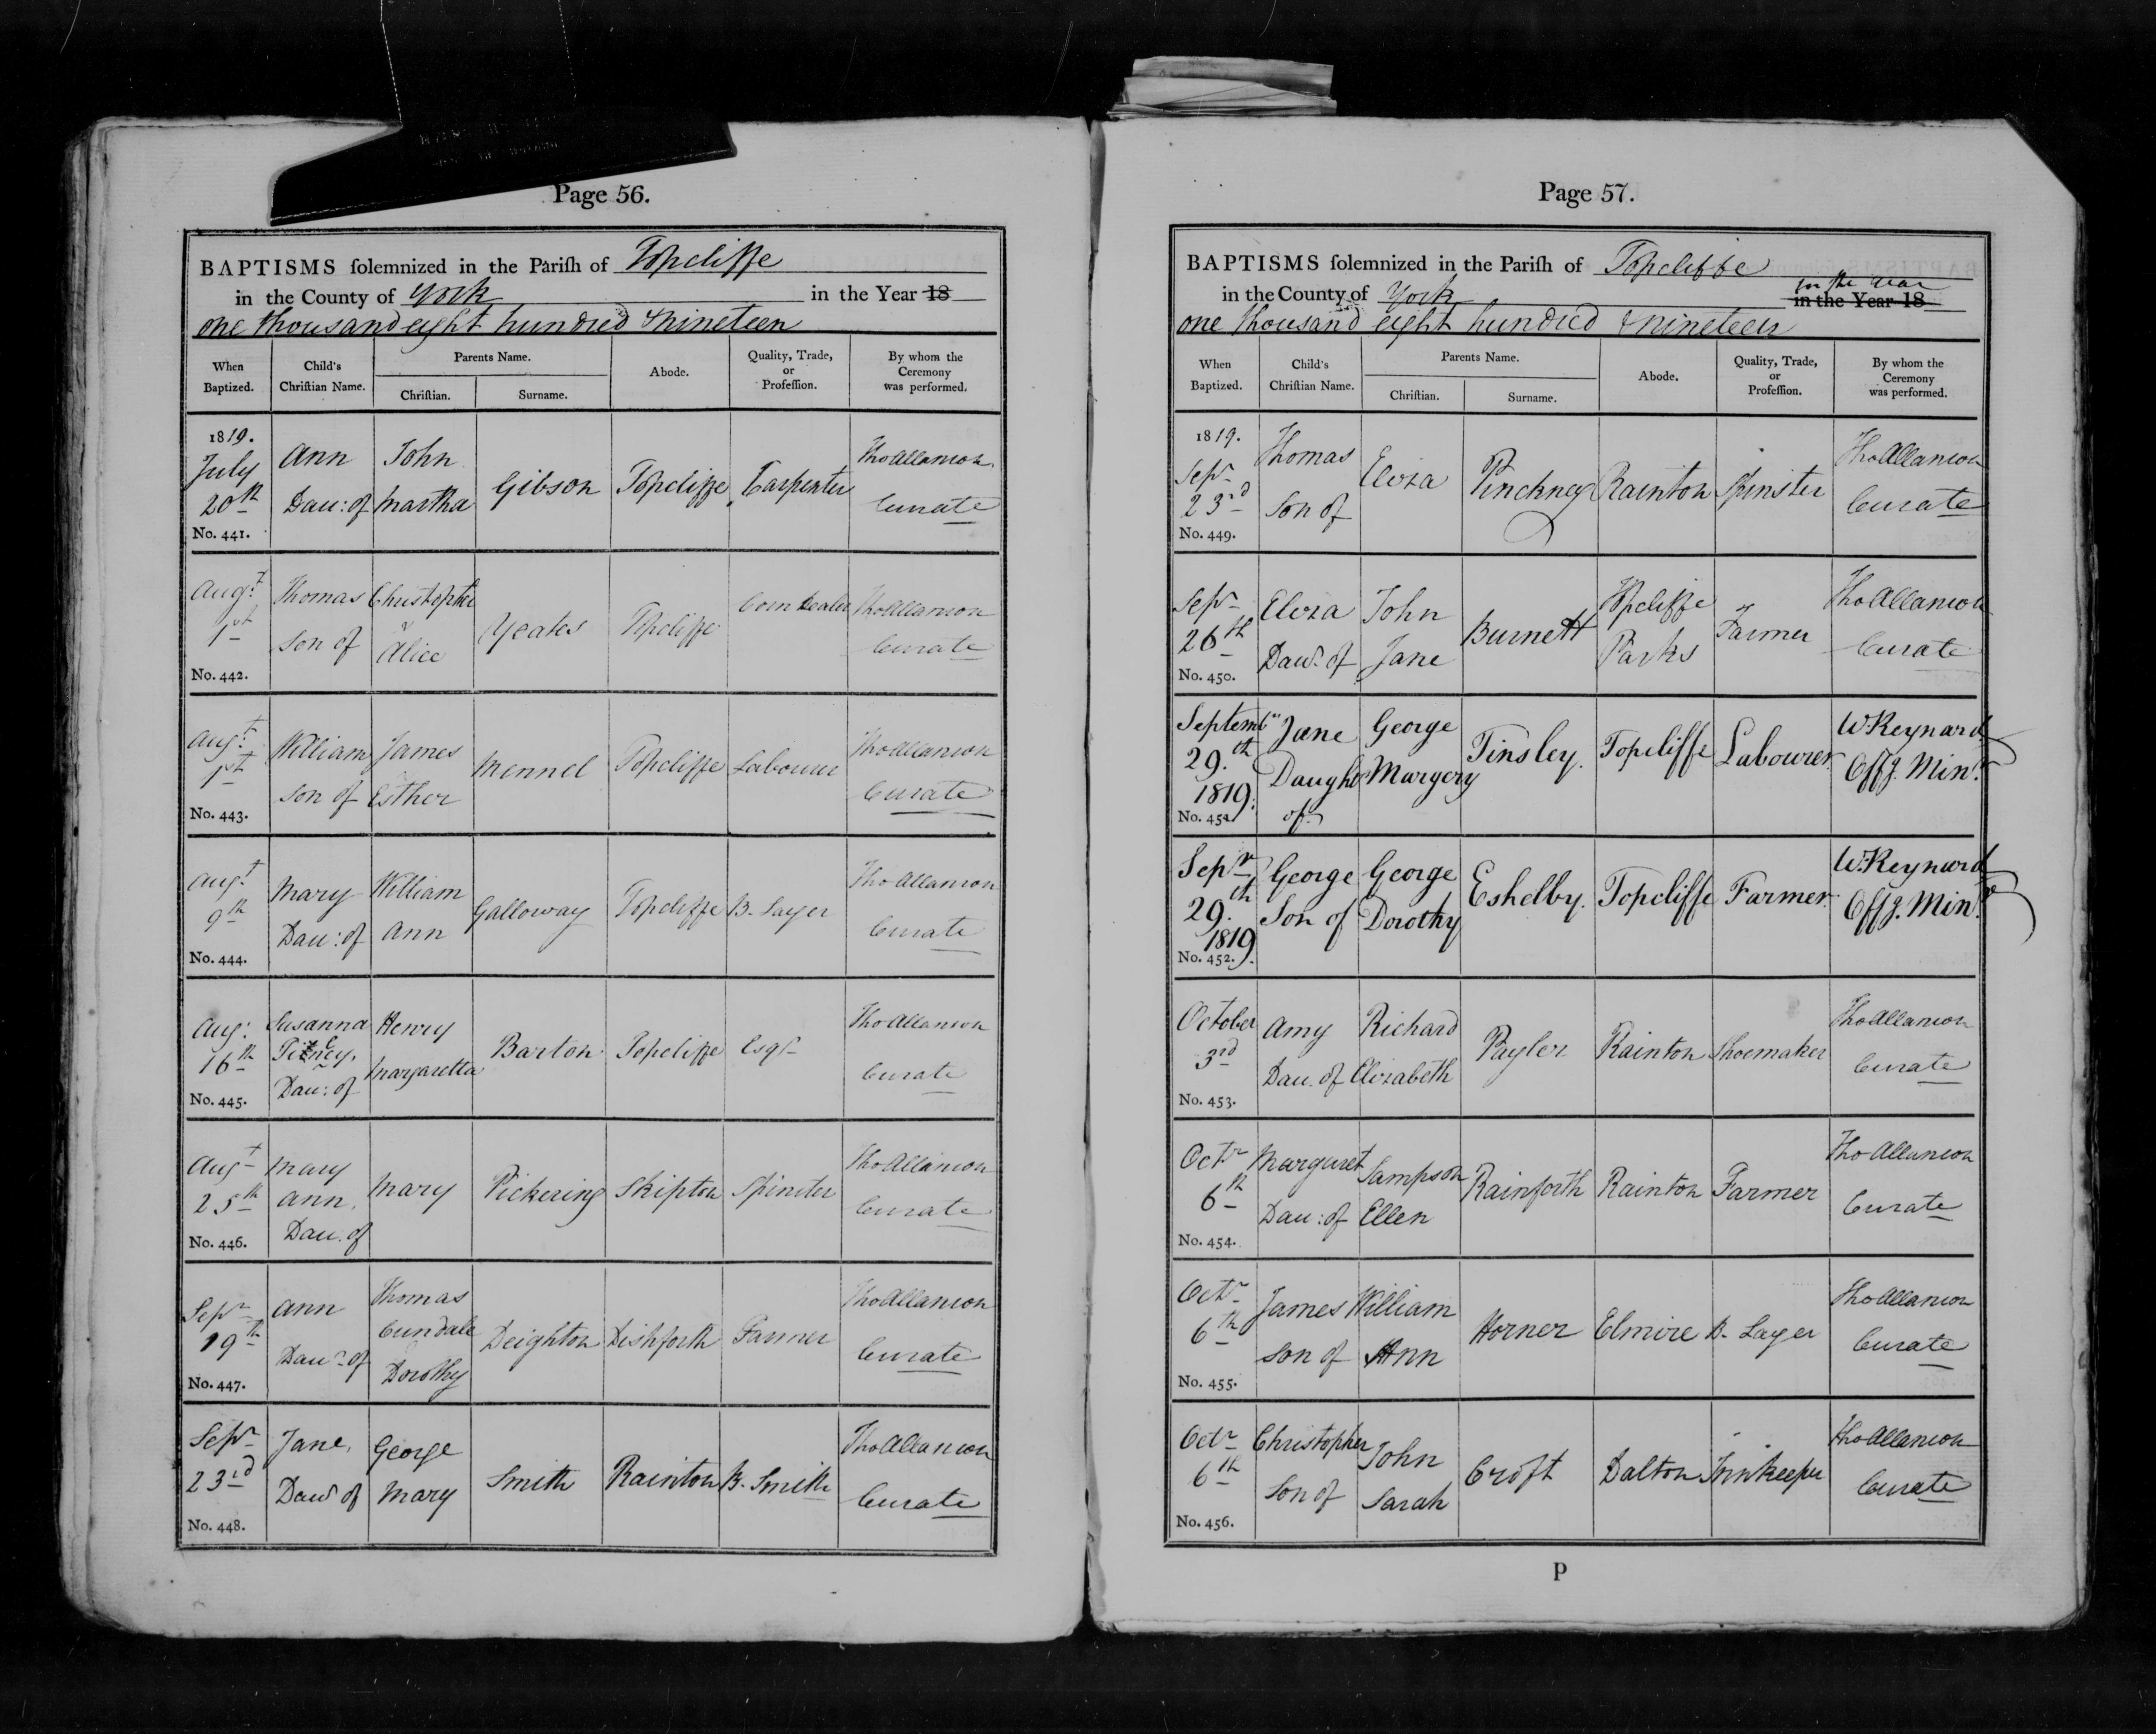 Page 56.
BAPTISMS ſolemnized in the Pariſh of Topcliffe
in the County of York in the Year 18
one thousand eight hundred & nineteen
When Baptized.
Child's Chriſtian Name.
Parents Name.
Chriſtian.
Surname.
Abode.
Quality, Trade, or Profeſſion.
By whom the Ceremony was performed.
1819. July 20th No. 441.
Ann Dau: of
John Martha
Gibson
Topcliffe
Carpenter
Tho Allanson Curate
Augt. 1st No. 442.
Thomas Son of
Christopher & Alice
Yeates
Topcliffe
Corn Dealer
Tho Allanson Curate
Augt. 1st No. 443.
William Son of
James Esther
Mennel
Topcliffe
Labourer
Tho Allanson Curate
Augt. 9th No. 444.
Mary Dau: of
William Ann
Galloway
Topcliffe
B. Layer
Tho Allanson Curate
Aug: 16th No. 445.
Susanna Dau: of
Henry Margaretta
Barton
Topcliffe
Esqr
Tho Allanson Curate
Augt 25th No. 446.
Mary Ann, Dau. of
Mary
Pickering
Skipton
Spinster
Tho Allanson Curate
Sepr 19th No. 447.
Ann Daur of
Thomas Cundale Dorothy
Deighton
Dishforth
Farmer
Tho Allanson Curate
Sepr 23rd No. 448.
Jane, Daur of
George Mary
Smith
Rainton
B. Smith
Tho Allanson Curate
Page 57.
BAPTISMS ſolemnized in the Pariſh of Topcliffe
in the Year
in the County of York in the Year 18
one thousand eight hundred & nineteen
When Baptized.
Child's Chriſtian Name.
Parents Name.
Chriſtian.
Surname.
Abode.
Quality, Trade, or Profeſſion.
By whom the Ceremony was performed.
1819. Sepr 23rd No. 449.
Thomas Son of
Eliza
Pinckney
Rainton
Spinster
Tho Allanson Curate
Sepr 26th No. 450.
Eliza Daur. of
John Jane
Burnett
Topcliffe Parks
Farmer
Tho Allanson Curate
Septembr 29.th 1819. No. 451.
Jane Daughr of
George Margery
Tinsley.
Topcliffe
Labourer.
W. Reynard Offg. Minr.
Sepr 29.th 1819. No. 452.
George Son of
George Dorothy
Eshelby.
Topcliffe
Farmer.
W. Reynard Offg. Minr.
October 3rd No. 453.
Amy Dau. of
Richard Elizabeth
Payler
Rainton
Shoemaker
Tho Allanson Curate
Octr 6th No. 454.
Margaret Dau: of
Sampson Ellen
Rainforth
Rainton
Farmer
Tho Allanson Curate
Octr 6th No. 455.
James Son of
William Ann
Horner
Elmire
B. Layer
Tho Allanson Curate
Octr 6th No. 456.
Christopher Son of
John Sarah
Croft
Dalton
Innkeeper
Tho Allanson Curate
P